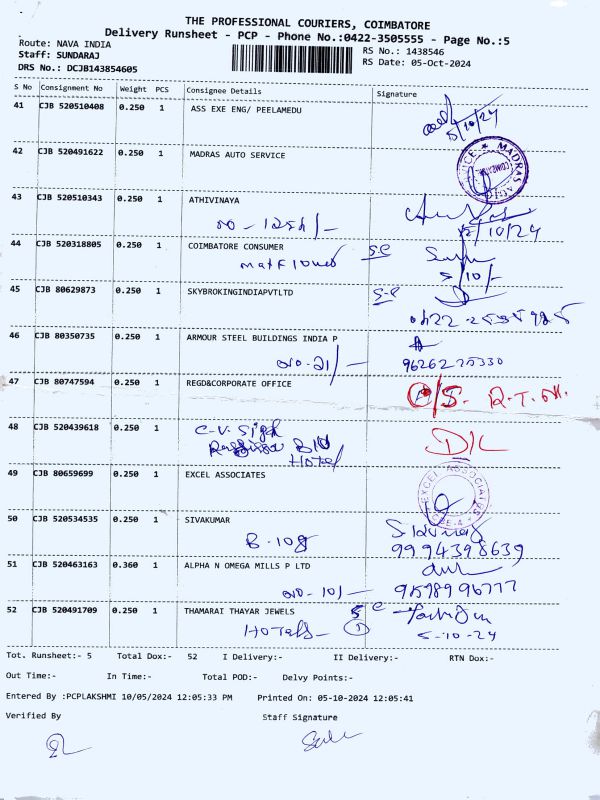 THE PROFESSIONAL COURIERS, COIMBATORE
Delivery Runsheet - PCP - Phone No.:0422-3505555 - Page No.:5
Route: NAVA INDIA
RS No.: 1438546
Staff: SUNDARAJ
RS Date: 05-Oct-2024
DRS No.: DCJB143854605
S No Consignment No Weight PCS Consignee Details Signature
41 CJB 520510408 0.250 1 ASS EXE ENG/ PEELAMEDU
5/10/24
42 CJB 520491622 0.250 1 MADRAS AUTO SERVICE
MADRAS
43 CJB 520510343 0.250 1 ATHIVINAYA
5/10/24
44 CJB 520318805 0.250 1 COIMBATORE CONSUMER
5/10/-
45 CJB 80629873 0.250 1 SKYBROKINGINDIAPVTLTD
46 CJB 80350735 0.250 1 ARMOUR STEEL BUILDINGS INDIA P
9626225330
47 CJB 80747594 0.250 1 REGD&CORPORATE OFFICE
48 CJB 520439618 0.250 1 C.V. Sigh
Hotel
49 CJB 80659699 0.250 1 EXCEL ASSOCIATES
EXCEL ASSOCIATES
CBE-4
50 CJB 520534535 0.250 1 SIVAKUMAR
9994398639
51 CJB 520463163 0.360 1 ALPHA N OMEGA MILLS P LTD
52 CJB 520491709 0.250 1 THAMARAI THAYAR JEWELS
5-10-24
Tot. Runsheet:- 5 Total Dox:- 52 I Delivery:- II Delivery:- RTN Dox:-
Out Time:- In Time:- Total POD:- Delvy Points:-
Entered By :PCPLAKSHMI 10/05/2024 12:05:33 PM Printed On: 05-10-2024 12:05:41
Verified By Staff Signature